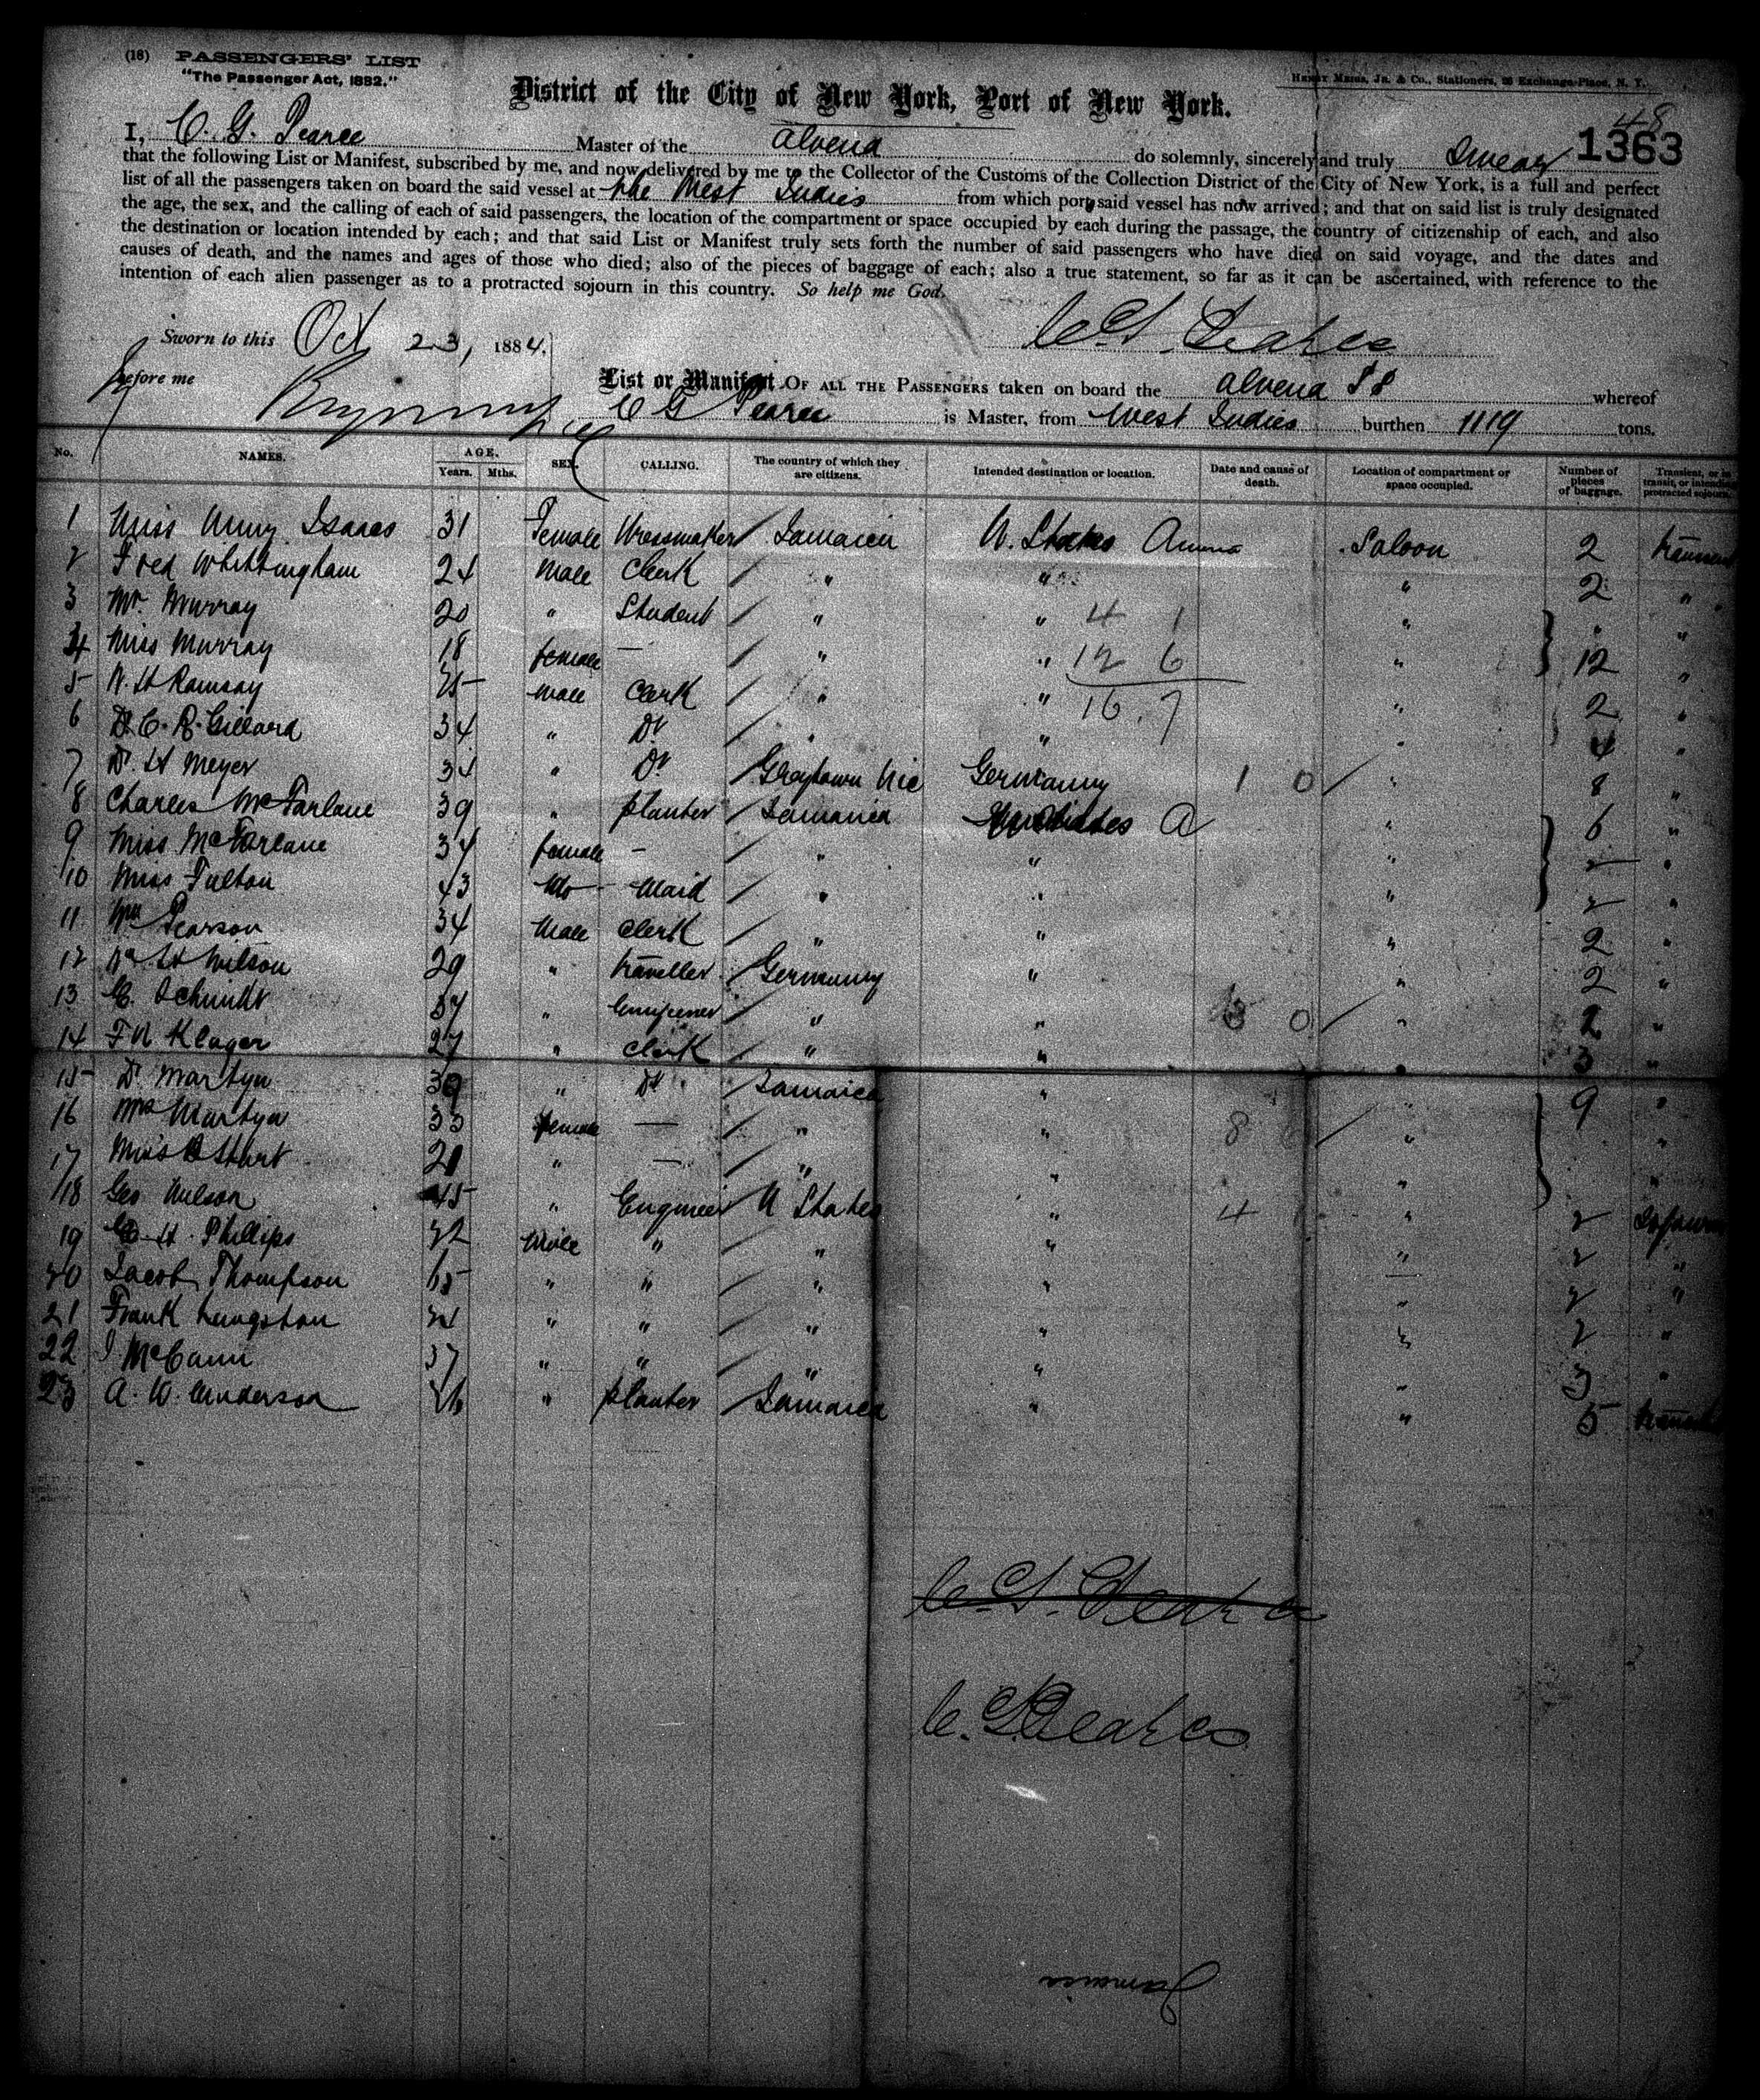 (18) PASSENGERS' LIST
"The Passenger Act, 1882."
HENRY MEIGS, JR. & CO., Stationers, Exchange-Place, N. Y.
District of the City of New York, Port of New York.
48
1363
I, C. G. Pearce Master of the Alvena do solemnly, sincerely and truly Swear
that the following List or Manifest, subscribed by me, and now delivered by me to the Collector of the Customs of the Collection District of the City of New York, is a full and perfect
list of all the passengers taken on board the said vessel at the West Indies from which port said vessel has now arrived; and that on said list is truly designated
the age, the sex, and the calling of each of said passengers, the location of the compartment or space occupied by each during the passage, the country of citizenship of each, and also
the destination or location intended by each; and that said List or Manifest truly sets forth the number of said passengers who have died on said voyage, and the dates and
causes of death, and the names and ages of those who died; also of the pieces of baggage of each; also a true statement, so far as it can be ascertained, with reference to the
intention of each alien passenger as to a protracted sojourn in this country. So help me God.
Sworn to this Oct 23, 1884. C. G. Pearce
before me
List or Manifest OF ALL THE PASSENGERS taken on board the Alvena SS whereof
C G Pearce is Master, from West Indies burthen 1119 tons.
No. NAMES. AGE. Years. Mths. SEX. CALLING. The country of which they are citizens. Intended destination or location. Date and cause of death. Location of compartment or space occupied. Number of pieces of baggage. Transient, or in transit, or intending protracted sojourn.
1 Miss Isaacs 31 Female Dressmaker Jamaica U. States Saloon 2
2 Fred Whittingham 24 Male Clerk " " " 2 "
3 Mr. Murray 20 " Student " " 4 1 " " "
4 Miss Murray 18 female — " " 12 6 " 12 "
5 Ramsay male Clerk " " 16 7 " 2 "
6 D. C. R. Gillard 34 " Dr " " " 4 "
7 Dr. H Meyer 34 " Dr Greytown Nic Germany 1 0 " 8 "
8 Charles McFarlane 39 " planter Jamaica A " 6 "
9 Miss McFarlane 34 female - " " " 2 "
10 Miss Fulton 43 do Maid " " " 2 "
11 Pearson 34 Male Clerk " " " 2 "
12 Wilson 29 " traveller Germany " " 2 "
13 C. Schmidt 37 " " " 0 " 2 "
14 Klager 27 " Clerk " " " 3 "
15 Dr Martyn 39 " Dr Jamaica " " 9 "
16 Mrs Martyn 33 female — " " 8 " "
17 Miss " — " " " "
18 Geo Wilson 45 " Engineer U States " 4 " 2
19 H. Phillips Male " " " " 2 "
20 Jacob Thompson " " " " 2 "
21 Frank " " " " " 2 "
22 J McCann 37 " " " " " 3 "
23 A. W. Anderson " planter Jamaica " " 5
C. G. Pearce
C. G. Pearce
Jamaica